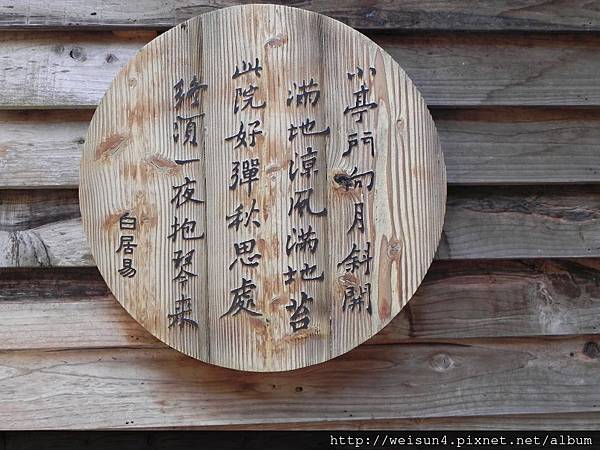 小亭門向月斜開
滿地涼風滿地苔
此院好彈秋思處
終須一夜抱琴來
白居易
http://weisun4.pixnet.net/album